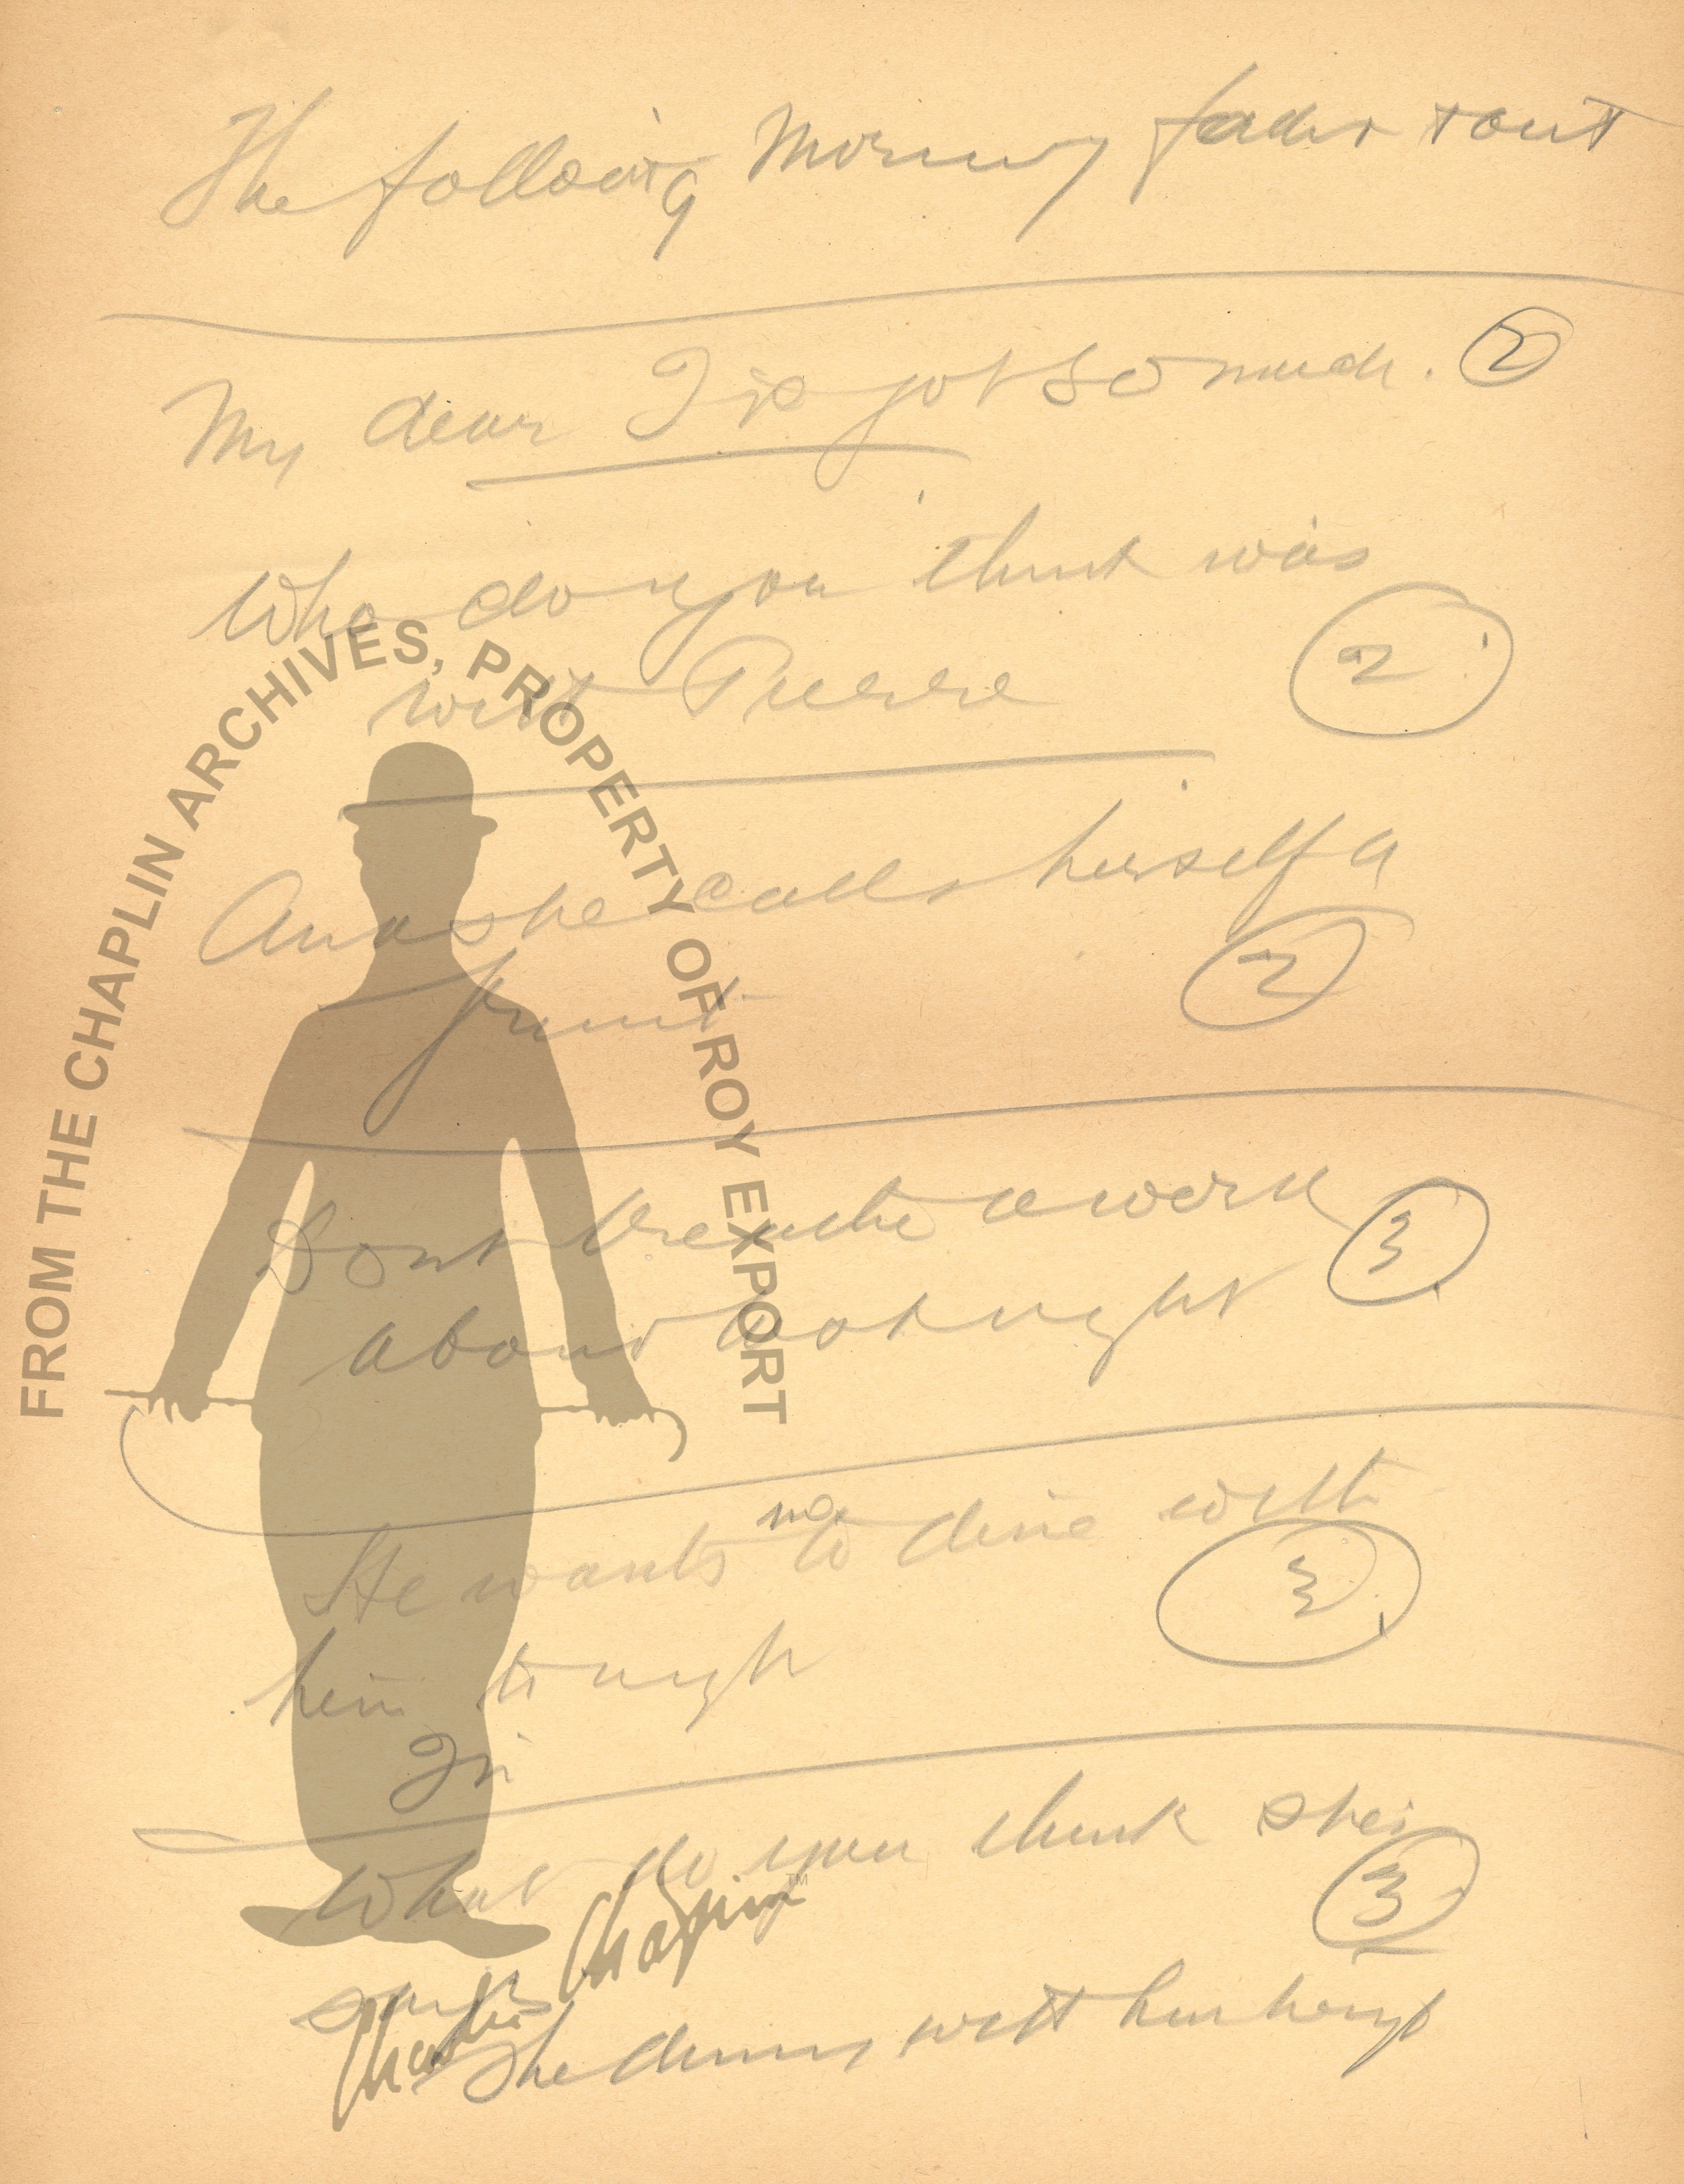 The following Morning fades + out
My dear I've got so much. 2
Who do you think was
with Pierre 2
And she calls herself a
friend 2
Dont breathe a word
about last night 3
He wants me to dine with
him to nigh 3
What do you think she
3
She dining with him
FROM THE CHAPLIN ARCHIVES, PROPERTY OF ROY EXPORT
Charlie Chaplin™